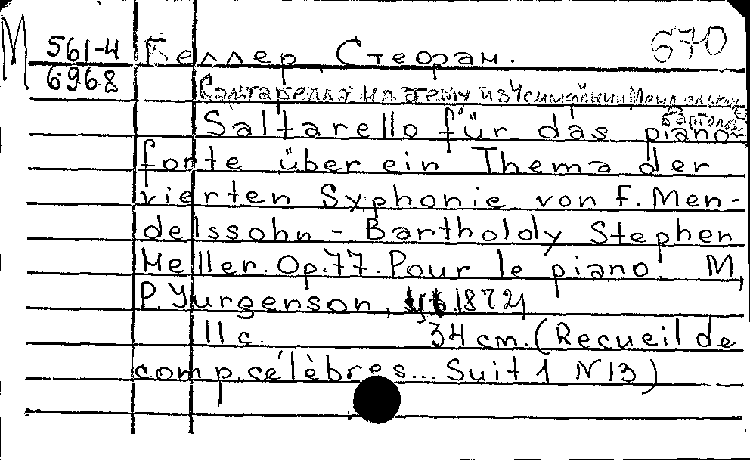 М 561-4 Геллер, Стефан. 570
6968 Салтарелла на тему из 4 симфонии Мендельсона
Бартольди
Saltarello für das piano-
forte über ein Thema der
vierten Syphonie von F. Men-
delssohn-Bartholdy Stephen
Heller. Op. 77. Pour le piano. M,
P. Yurgenson, 1872,
11 c. 34 cm. (Recueil de
comp. célèbres... Suit 1 N 13)